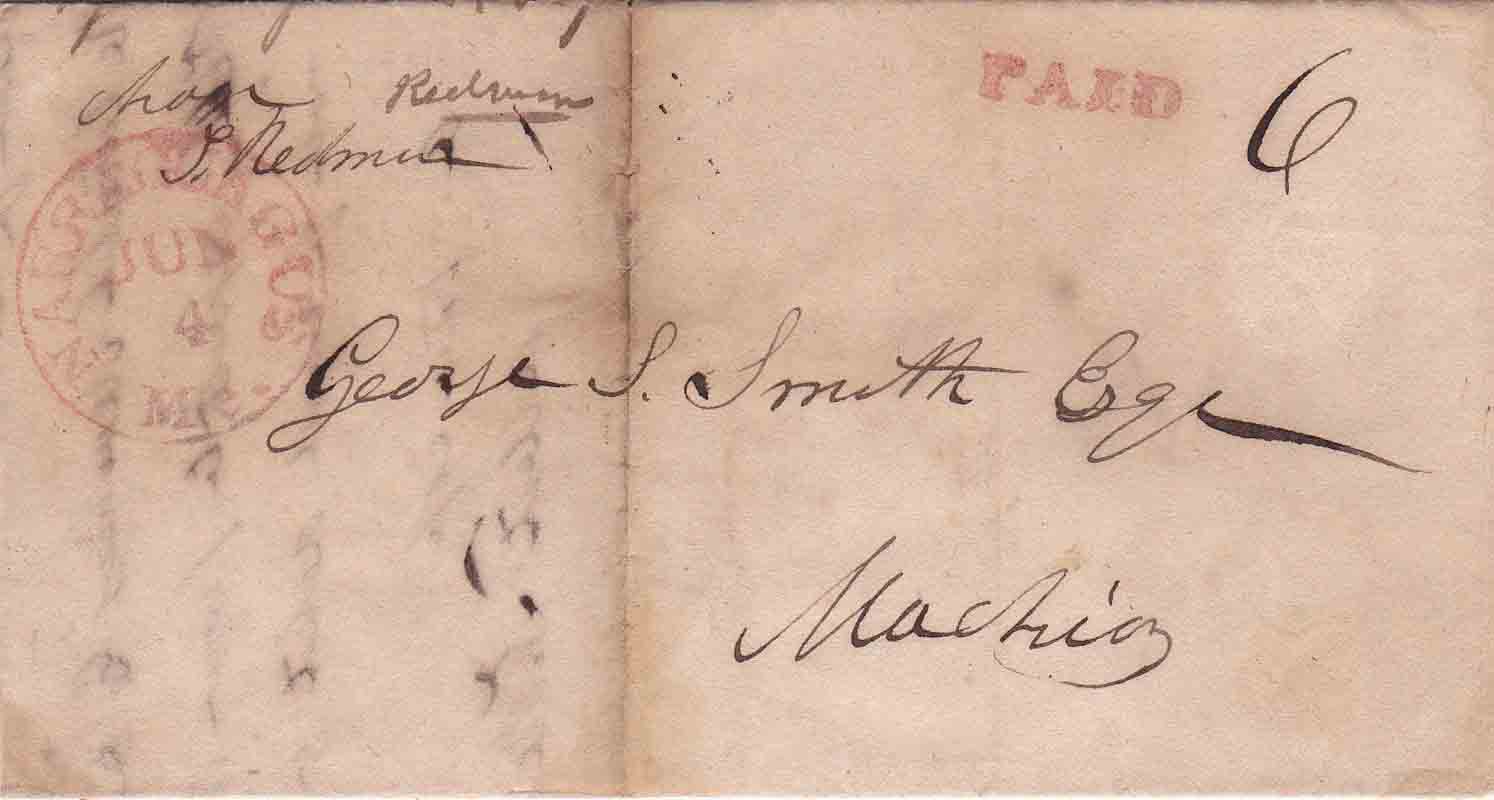 Redman
PAID
6
S. Redman
NARRAGUAGUS
JUN
4
Me.
George S. Smith Esqr
Machias